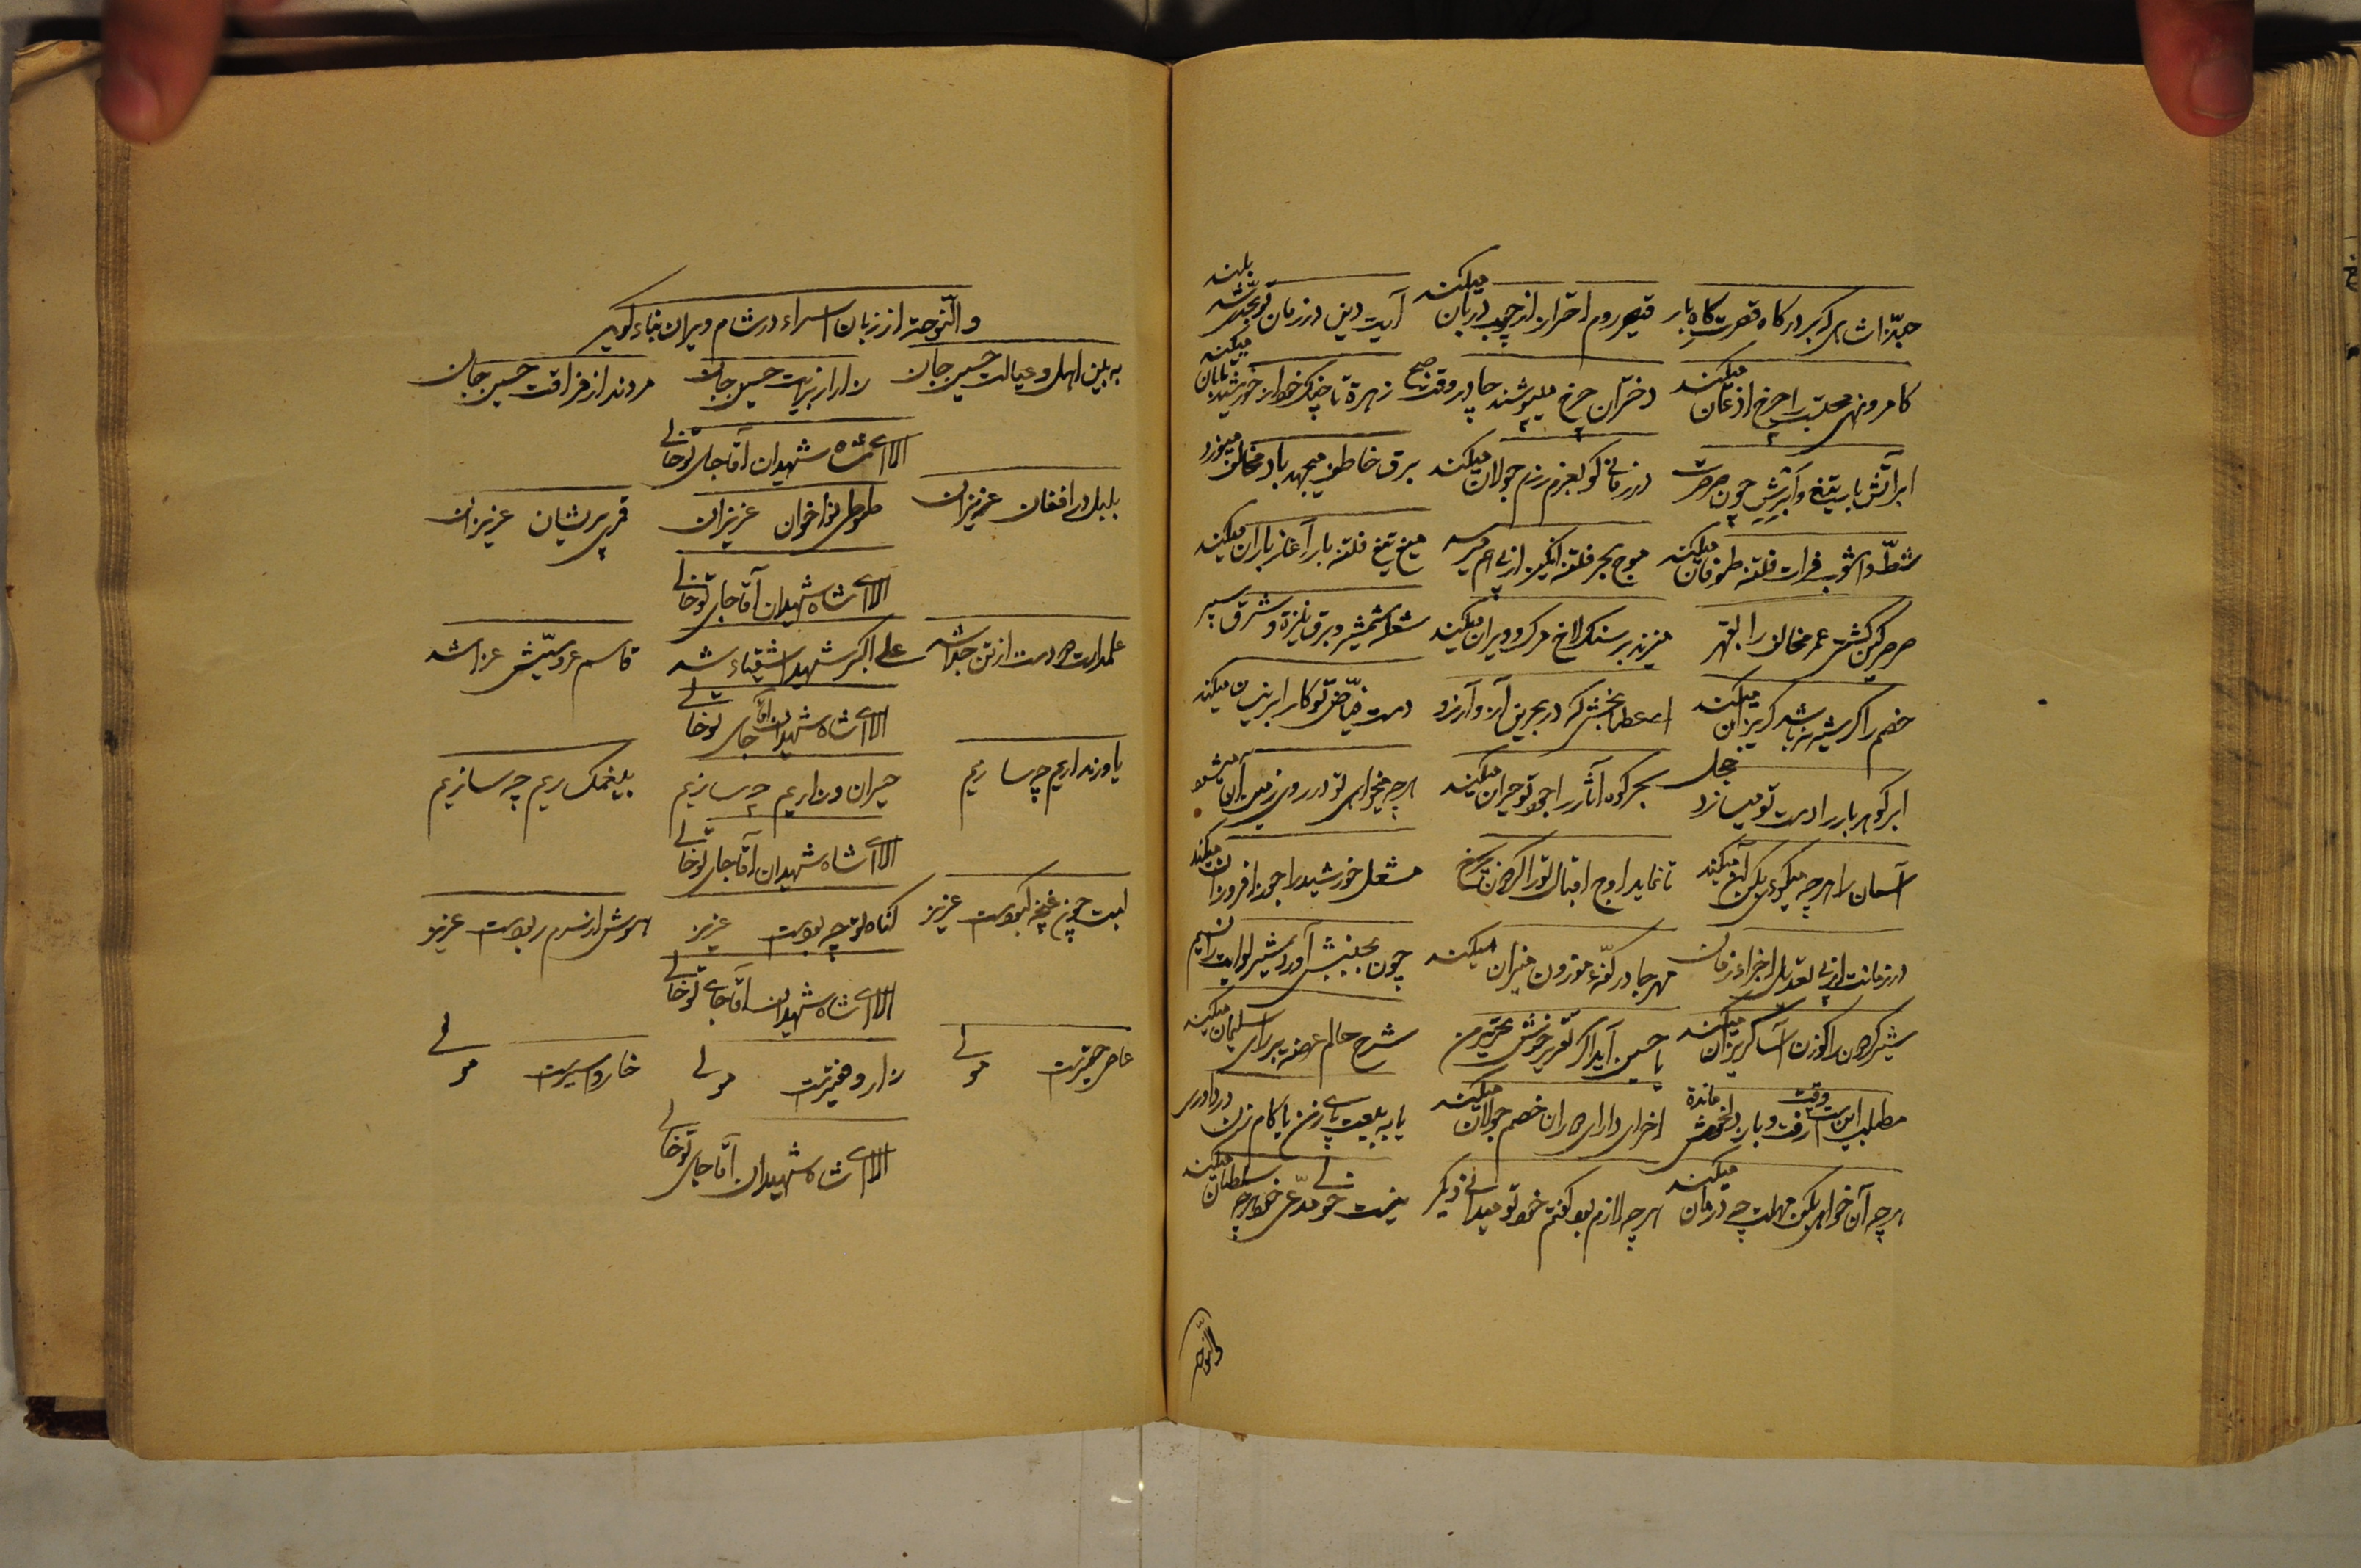 حبّذا شاهی که بر درگاه قصرت گاه بار قیصر روم احتراز از چوب دربان میکند آیت دین در زمان تو بحدّی شد بلند
کامر و نهی محتسب را چرخ اذعان میکند دختران چرخ میپوشند چادر وقت صبح زهره تا چنگ خود از خورشید پنهان میکند
ابر آتش بار تیغ و ابرش چون صرصرت در زمانی کو بعزم رزم جولان میکند برق خاطف میجهد باد مخالف میوزد
شطّ و آشوب فرات فتنه طوفان میکند موج بحر فتنه انگیز از پی هم میرسد میغ تیغ فتنه بار آغاز باران میکند
صرصر کین کشتی عمر مخالف را بقهر میزند بر سنگلاخ مرگ و ویران میکند شعله شمشیر و برق نیزه و شرق سپر
خصم را گر شیر نر باشد گریزان میکند عطا بخشی که در بحرین آز و آرزو دست فیّاض تو کار ابر نیسان میکند
ابر گوهر بار را دست تو میسازد خجل بحر گوهر آثار را جود تو حیران میکند هر چه میخواهی تو در روی زمین آن میشود
آسمان را هر چه میگوئی بکن آن میکند تا نماید اوج اقبال تو را گردون چرخ مشعل خورشید را خود فروزان میکند
در زمانت از پی تعدیل اجزاء زمان مهر جا در کفّهٔ موزون میزان میکند چون بجنبش آورد شیر لوایت را نسیم
شیر گردون را گوزن آسا گریزان میکند یا حسین آید اگر تقریر خوش تحریر من شرح حالم عرضه بر رای سلیمان میکند
مطلب این است وقت رفت و بار دل خویش مانده اخرای دارای دوران خصم جولان میکند یا به بیعت پای زن یا کام زن در داوری
هر چه آن خواهی بکن مهلت چه درمان میکند هر چه لازم بود گفتم خود تو میدانی دیگر نیست خود مدّعی خود هر چه سلطان میکند
والنّوحه
والنّوحة از زبان اسراء در شام ویران بناء گوید
به بین اهل و عیالت حسین جان زار از برایت حسین جان مردند از فراقت حسین جان
الا ای شاه شهیدان آقا جای تو خالی
بلبل در افغان عزیزان طوطی نواخوان عزیزان قمری پریشان عزیزان
الا ای شاه شهیدان آقا جای تو خالی
علمدارت دو دست از تن جدا شد علی اکبر شهید اشقیاء شد قاسم عروسیّش عزا شد
الا ای شاه شهیدان آقا جای تو خالی
یاور نداریم چه سازیم حیران و زاریم چه سازیم بیغمگساریم چه سازیم
الا ای شاه شهیدان آقا جای تو خالی
لبت چون غنچه کبودست عزیز گناه تو چه بودست عزیز هوش از سرم ربودست عزیز
الا ای شاه شهیدان آقا جای تو خالی
عاصر حقیرت مولی زار و فقیرت مولی خار و اسیرت مولی
الا ای شاه شهیدان آقا جای تو خالی